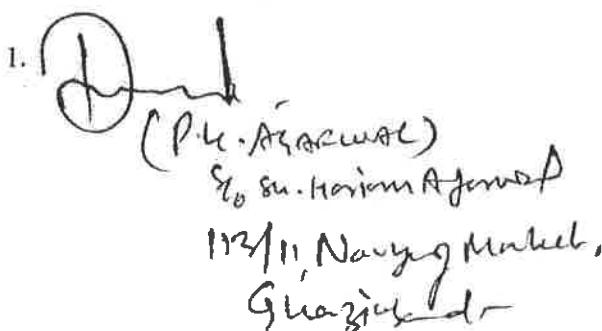 1.
(P.K. AGARWAL)
S/o Sh. Hariom Agarwal
113/11, Navyug Market,
Ghaziabad